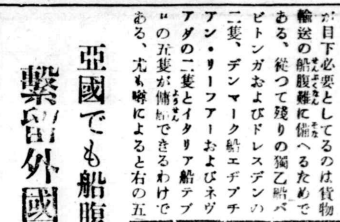 が目下必要としてるのは貨物
輸送の船腹難に備へるためで
ある、従つて残りの獨乙船ベ
ビトンガおよびドレスデンの
二隻、デンマーク船エヂプチ
アン・リーフアーおよびネヴ
アダの二隻とイタリア船テブ
の五隻が傭船できるわけで
ある、尤も噂によると右の五
亞國でも船腹
繋留外國